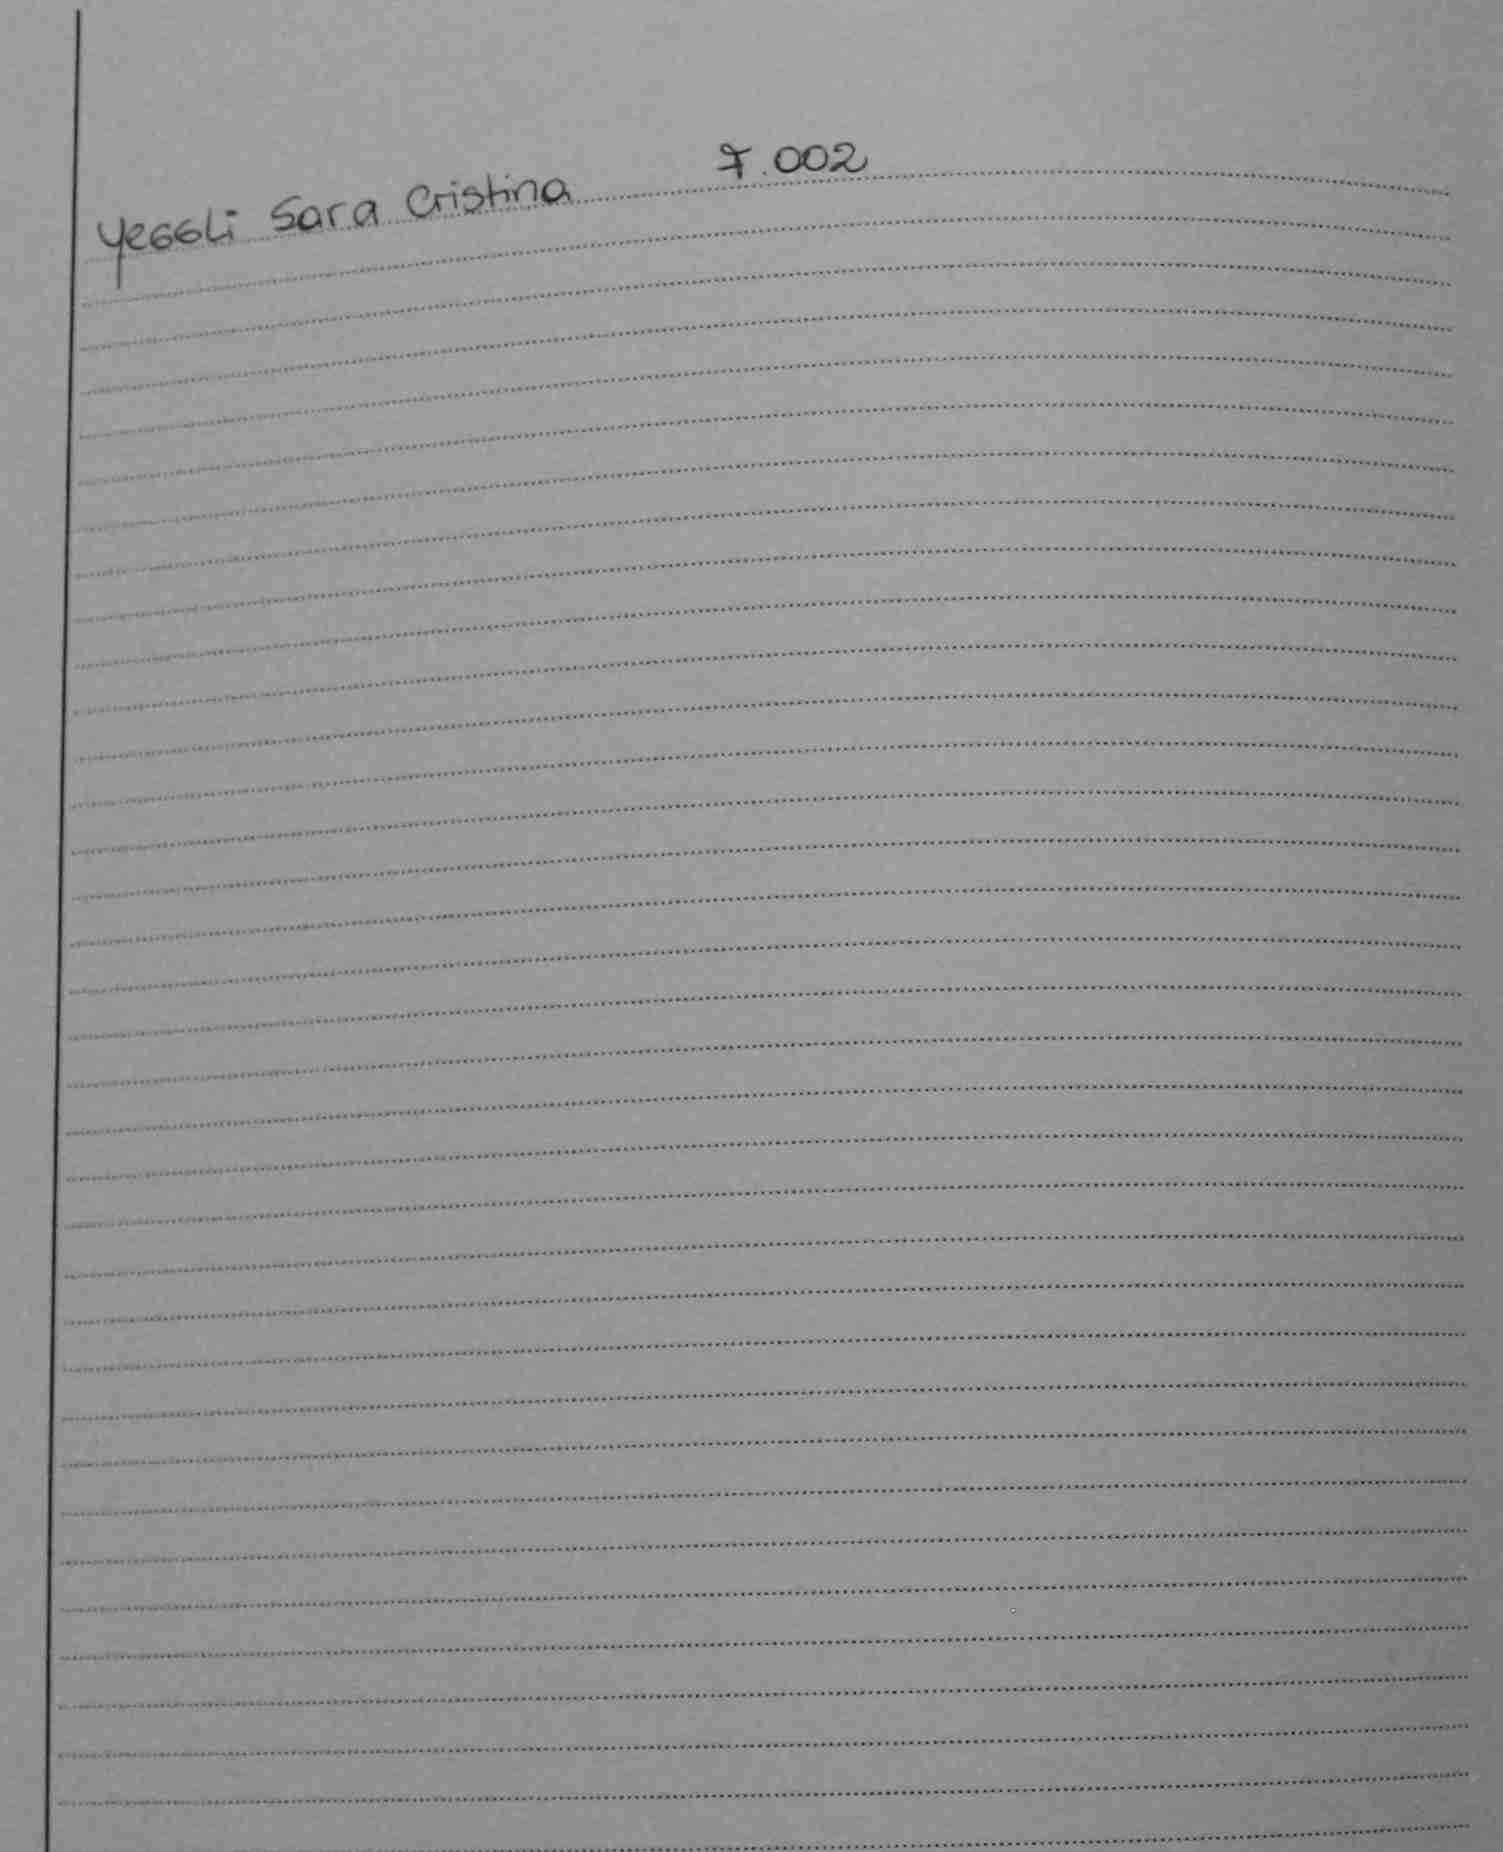 Yessli Sara Cristina 7.002